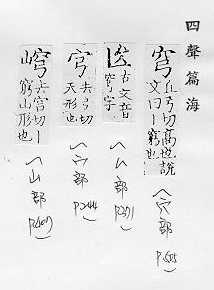 四聲篇海
穹 丘弓切高也說
文曰丨窮也
〈穴部
古文音
穹字
〈厶部
P.271
宆 去弓切
天形也
〈宀部
P.244
去宮切丨
窮山形也
〈山部